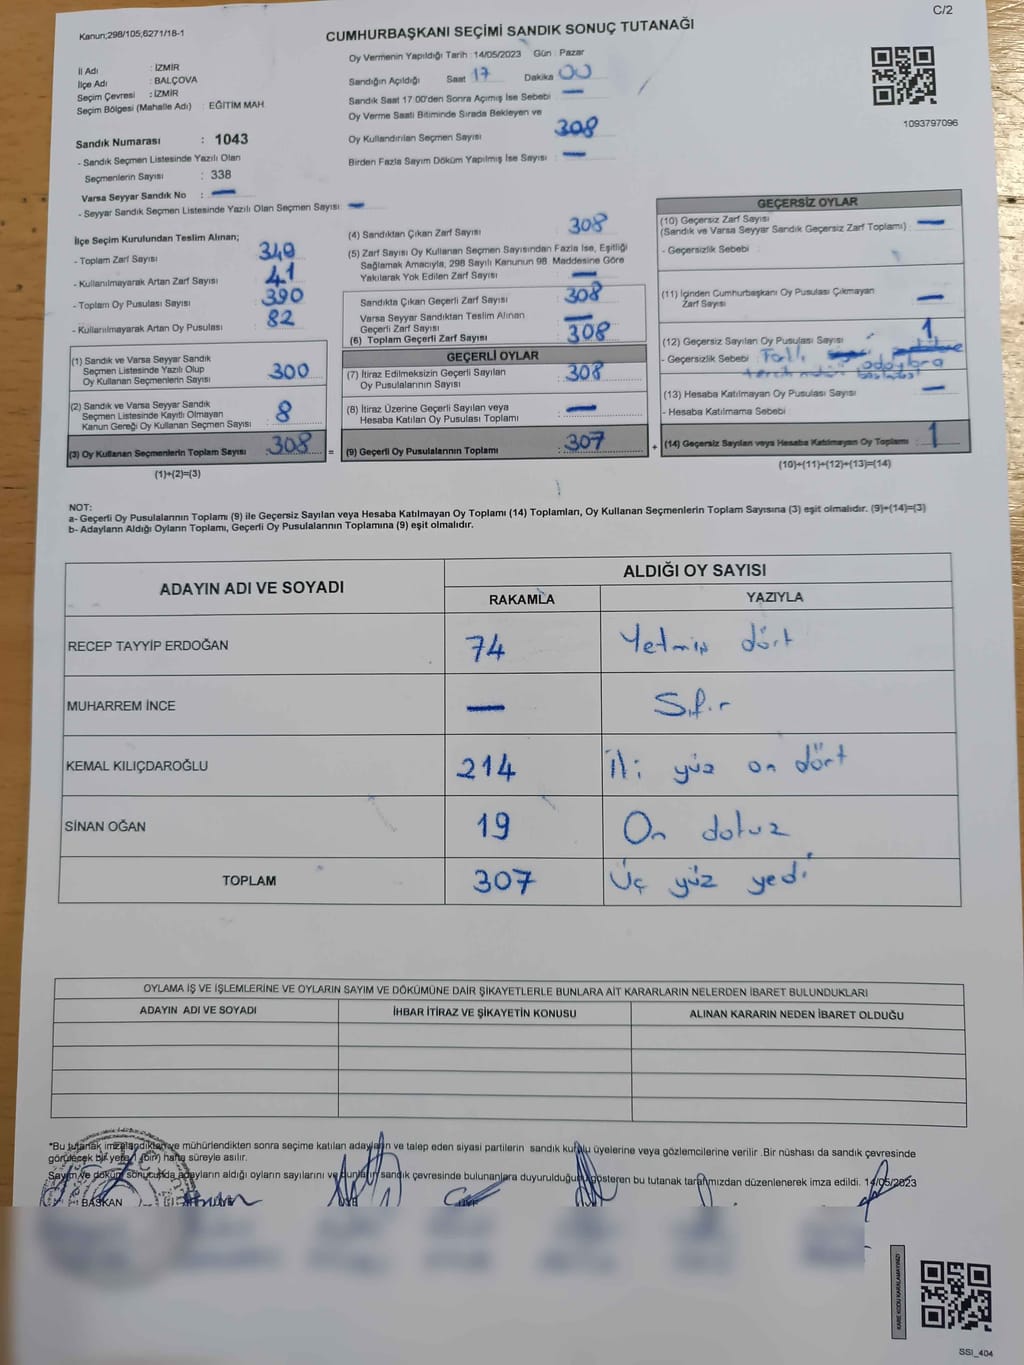 C/2
Kanun;298/105;6271/18-1
CUMHURBAŞKANI SEÇİMİ SANDIK SONUÇ TUTANAĞI
İl Adı : İZMİR
İlçe Adı : BALÇOVA
Seçim Çevresi : İZMİR
Seçim Bölgesi (Mahalle Adı) : EĞİTİM MAH.
Sandık Numarası : 1043
- Sandık Seçmen Listesinde Yazılı Olan
Seçmenlerin Sayısı : 338
Varsa Seyyar Sandık No : —
- Seyyar Sandık Seçmen Listesinde Yazılı Olan Seçmen Sayısı : —
Oy Vermenin Yapıldığı Tarih : 14/05/2023 Gün : Pazar
Sandığın Açıldığı Saat 17 Dakika 00
Sandık Saat 17.00'den Sonra Açımış İse Sebebi : —
Oy Verme Saati Bitiminde Sırada Bekleyen ve
Oy Kullandırılan Seçmen Sayısı : 308
Birden Fazla Sayım Döküm Yapılmış İse Sayısı : —
1093797096
İlçe Seçim Kurulundan Teslim Alınan;
- Toplam Zarf Sayısı : 349
- Kullanılmayarak Artan Zarf Sayısı : 41
- Toplam Oy Pusulası Sayısı : 390
- Kullanılmayarak Artan Oy Pusulası : 82
(1) Sandık ve Varsa Seyyar Sandık
Seçmen Listesinde Yazılı Olup
Oy Kullanan Seçmenlerin Sayısı : 300
(2) Sandık ve Varsa Seyyar Sandık
Seçmen Listesinde Kayıtlı Olmayan
Kanun Gereği Oy Kullanan Seçmen Sayısı : 8
(3) Oy Kullanan Seçmenlerin Toplam Sayısı : 308
(1)+(2)=(3)
(4) Sandıktan Çıkan Zarf Sayısı : 308
(5) Zarf Sayısı Oy Kullanan Seçmen Sayısından Fazla İse, Eşitliği
Sağlamak Amacıyla, 298 Sayılı Kanunun 98. Maddesine Göre
Yakılarak Yok Edilen Zarf Sayısı : —
Sandıkta Çıkan Geçerli Zarf Sayısı : 308
Varsa Seyyar Sandıktan Teslim Alınan
Geçerli Zarf Sayısı : —
(6) Toplam Geçerli Zarf Sayısı : 308
GEÇERLİ OYLAR
(7) İtiraz Edilmeksizin Geçerli Sayılan
Oy Pusulalarının Sayısı : 308
(8) İtiraz Üzerine Geçerli Sayılan veya
Hesaba Katılan Oy Pusulası Toplamı : —
= (9) Geçerli Oy Pusulalarının Toplamı : 307 +
GEÇERSİZ OYLAR
(10) Geçersiz Zarf Sayısı
(Sandık ve Varsa Seyyar Sandık Geçersiz Zarf Toplamı) : —
- Geçersizlik Sebebi :
(11) İçinden Cumhurbaşkanı Oy Pusulası Çıkmayan
Zarf Sayısı : —
(12) Geçersiz Sayılan Oy Pusulası Sayısı : 1
- Geçersizlik Sebebi : Farklı adaylara
tercih mührü
(13) Hesaba Katılmayan Oy Pusulası Sayısı : —
- Hesaba Katılmama Sebebi :
(14) Geçersiz Sayılan veya Hesaba Katılmayan Oy Toplamı : 1
(10)+(11)+(12)+(13)=(14)
NOT:
a- Geçerli Oy Pusulalarının Toplamı (9) ile Geçersiz Sayılan veya Hesaba Katılmayan Oy Toplamı (14) Toplamları, Oy Kullanan Seçmenlerin Toplam Sayısına (3) eşit olmalıdır. (9)+(14)=(3)
b- Adayların Aldığı Oyların Toplamı, Geçerli Oy Pusulalarının Toplamına (9) eşit olmalıdır.
ADAYIN ADI VE SOYADI ALDIĞI OY SAYISI
RAKAMLA YAZIYLA
RECEP TAYYİP ERDOĞAN 74 Yetmiş dört
MUHARREM İNCE — Sıfır
KEMAL KILIÇDAROĞLU 214 İki yüz on dört
SİNAN OĞAN 19 On dokuz
TOPLAM 307 Üç yüz yedi
OYLAMA İŞ VE İŞLEMLERİNE VE OYLARIN SAYIM VE DÖKÜMÜNE DAİR ŞİKAYETLERLE BUNLARA AİT KARARLARIN NELERDEN İBARET BULUNDUKLARI
ADAYIN ADI VE SOYADI İHBAR İTİRAZ VE ŞİKAYETİN KONUSU ALINAN KARARIN NEDEN İBARET OLDUĞU
*Bu tutanak imzalandıktan ve mühürlendikten sonra seçime katılan adayların ve talep eden siyasi partilerin sandık kurulu üyelerine veya gözlemcilerine verilir .Bir nüshası da sandık çevresinde
görülecek bir yere 1 (bir) hafta süreyle asılır.
Sayım ve döküm sonucunda adayların aldığı oyların sayılarını ve bunların sandık çevresinde bulunanlara duyurulduğunu gösteren bu tutanak tarafımızdan düzenlenerek imza edildi. 14/05/2023
BAŞKAN ÜYE ÜYE ÜYE
KARE KODU KARALAMAYINIZ!
SSI_404